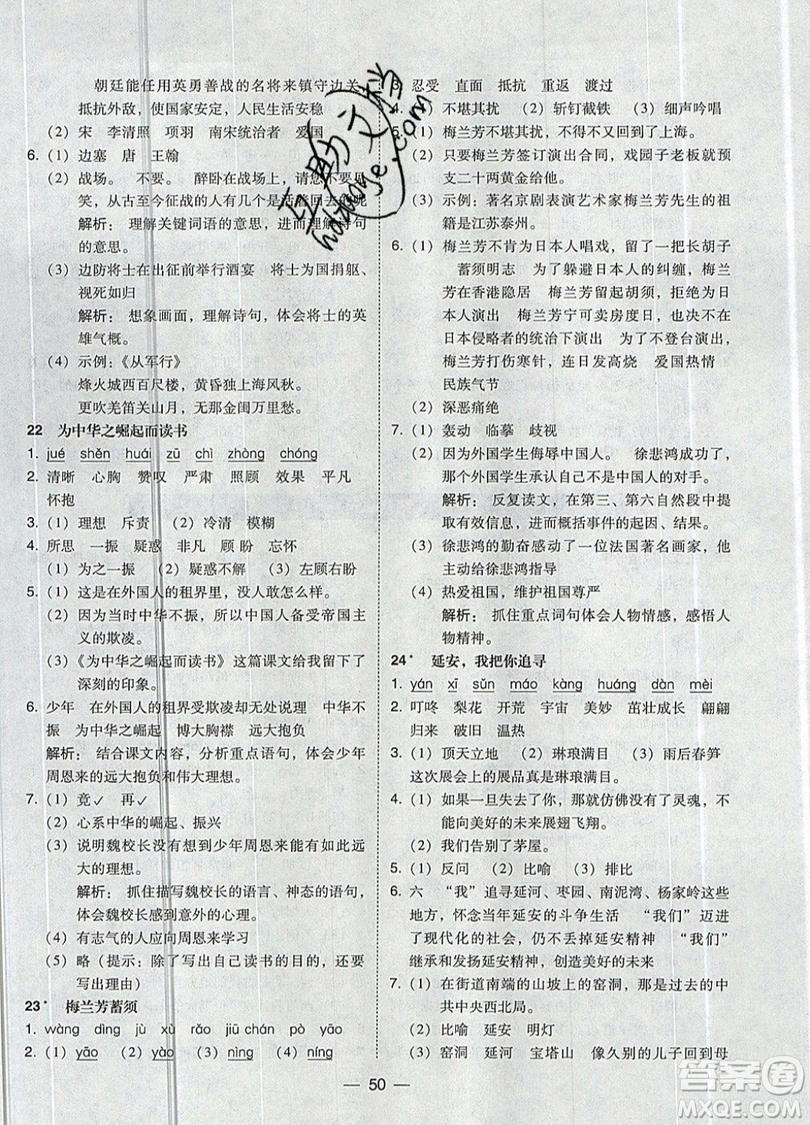 朝廷能任用英勇善战的名将来镇守边关
抵抗外敌，使国家安定，人民生活安稳
(2) 宋　李清照　项羽　南宋统治者　爱国
6. (1) 边塞　唐　王翰
(2) 战场。　不要　醉卧在战场上，请不要见
笑，从古至今征战的人有几个是活着
解析：理解关键词语的意思，进而理解诗句
的意思。
(3) 边防将士在出征前举行酒宴　将士为国捐躯、
视死如归
解析：想象画面，理解诗句，体会将士的英
雄气概。
(4) 示例：《从军行》
烽火城西百尺楼，黄昏独上海风秋。
更吹羌笛关山月，无那金闺万里愁。
22　为中华之崛起而读书
1. jué shěn huái zū chì zhòng chóng
2. 清晰　心胸　赞叹　严肃　照顾　效果　平凡
怀抱
3. (1) 理想　斥责　(2) 冷清　模糊
4. 所思　一振　疑惑　非凡　顾 盼　忘怀
(1) 为之一振　(2) 疑惑不解　(3) 左顾右盼
5. (1) 这是在外国人的租界里，没人敢怎么样。
(2) 因为当时中华不振，所以中国人备受帝国主
义的欺凌。
(3) 《为中华之崛起而读书》这篇课文给我留下了
深刻的印象。
6. 少年　在外国人的租界受欺凌却无处说理　中华不
振　为中华之崛起　博大胸襟　远大抱负
解析：结合课文内容，分析重点语句，体会少年
周恩来的远大抱负和远大理想。
7. (1) 竟✓　再✓
(2) 心系中华的崛起、振兴
(3) 说明魏校长没有想到少年周恩来能有如此远
大的理想。
解析：抓住描写魏校长的语言、神态的语句，
体会魏校长当时的心理。
(4) 有志气的人应向周恩来学习
(5) 略（提示：除了写出读书的目的，还要
写出理由）
23* 梅兰芳蓄须
1. wàng dìng jù xù rǎo jiū chán pò yāo
2. (1) yāo　(2) yào　(3) nìng　(4) níng
3. 忍受　直面　抵抗　重返　渡过
4. (1) 不堪其扰　(2) 斩钉截铁　(3) 细声吟唱
5. (1) 梅兰芳不堪其扰，不得不又回到了上海。
(2) 只要梅兰芳签订演出合同，戏园子老板就预
支二十两黄金给他。
(3) 示例：著名京剧表演艺术家梅兰芳先生的
祖籍是江苏泰州。
6. (1) 梅兰芳不肯为日本人唱戏，留了一把长胡子
蓄须明志　为了躲避日本人的纠缠，梅兰
芳在香港隐居　梅兰芳留起胡须，拒绝为
日本人演出　梅兰芳宁可卖房度日，也决不在
日本侵略者的统治下演出　为了不登台演出，
梅兰芳打伤寒针，险些丧命　爱国热情
民族气节
(2) 深恶痛绝
7. (1) 轰动　临摹　歧视
(2) 一个外国学生侮辱中国人。　徐悲鸿成功了，
那个外国学生承认自己不是中国人的对手。
解析：反复读文，在第三、第六自然段中
提取有效信息，进而概括事件的起因、结果。
(3) 徐悲鸿的勤奋感动了一位法国著名画家，他
主动给徐悲鸿指导
(4) 热爱祖国，维护祖国尊严
解析：抓住重点词句体会人物情感，感悟人
物精神。
24* 延安，我把你追寻
1. yán xī sǔn máo kàng huáng dàn mèi
2. 叮咚　梨花　开荒　宇宙　美妙　茁壮成长　翩翩
归来　破旧　温热
3. (1) 顶天立地　(2) 琳琅满目　(3) 雨后春笋
这次展会上的展品真是琳琅满目。
4. (1) 如果一旦失去了你，那就仿佛没有了灵魂，不
能向美好的未来展翅飞翔。
(2) 我们告别了茅屋。
5. (1) 反问　(2) 比喻　(3) 排比
6. 六　“我”追寻延河、枣园、南泥湾、杨家岭这些
地方，怀念当年延安的斗争生活　“我们”迈进
了现代化的社会，仍不丢弃延安精神　“我们”
继承和发扬延安精神，追求美好的未来
7. (1) 在街道南端的山坡上的窑洞，当年的中
共中央西北局。
(2) 比喻　延安　明灯
(3) 窑洞　延河　宝塔山　像久别的儿子回到母
50
互助文档
huzhuwenda.com
答案圈
MXQE.COM